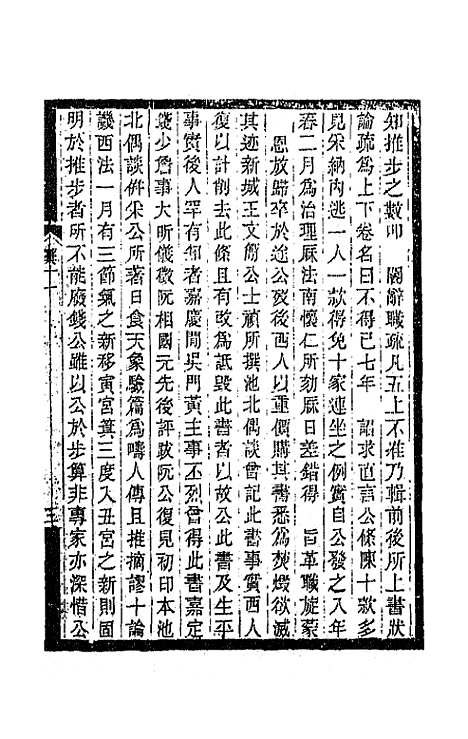 知推步之數叩　閽辭職疏凡五上不准乃輯前後所上書狀
論疏爲上下卷名曰不得已七年　詔求直言公條陳十款多
見采納內逃一人一款得免十家連坐之例實自公發之八年
春二月爲治理厤法南懷仁所劾厤日差錯得　旨革職旋蒙
恩放歸卒於途公歿後西人以重價購其書悉爲焚燬欲滅
其迹新城王文簡公士禎所撰池北偶談曾記此書事實西人
復以計削去此條且有改爲詆毀此書者以故公此書及生平
事實後人罕有知者嘉慶間吳門黃主事丕烈曾得此書嘉定
錢少詹事大昕儀徵阮相國元先後評跋阮公復見初印本池
北偶談併采公所著日食天象驗篇爲疇人傳且推摘謬十論
譏西法一月有三節氣之新移寅宮箕三度入丑宮之新則固
明於推步者所不能廢錢公雖以公於步算非專家亦深惜公
集十一
三